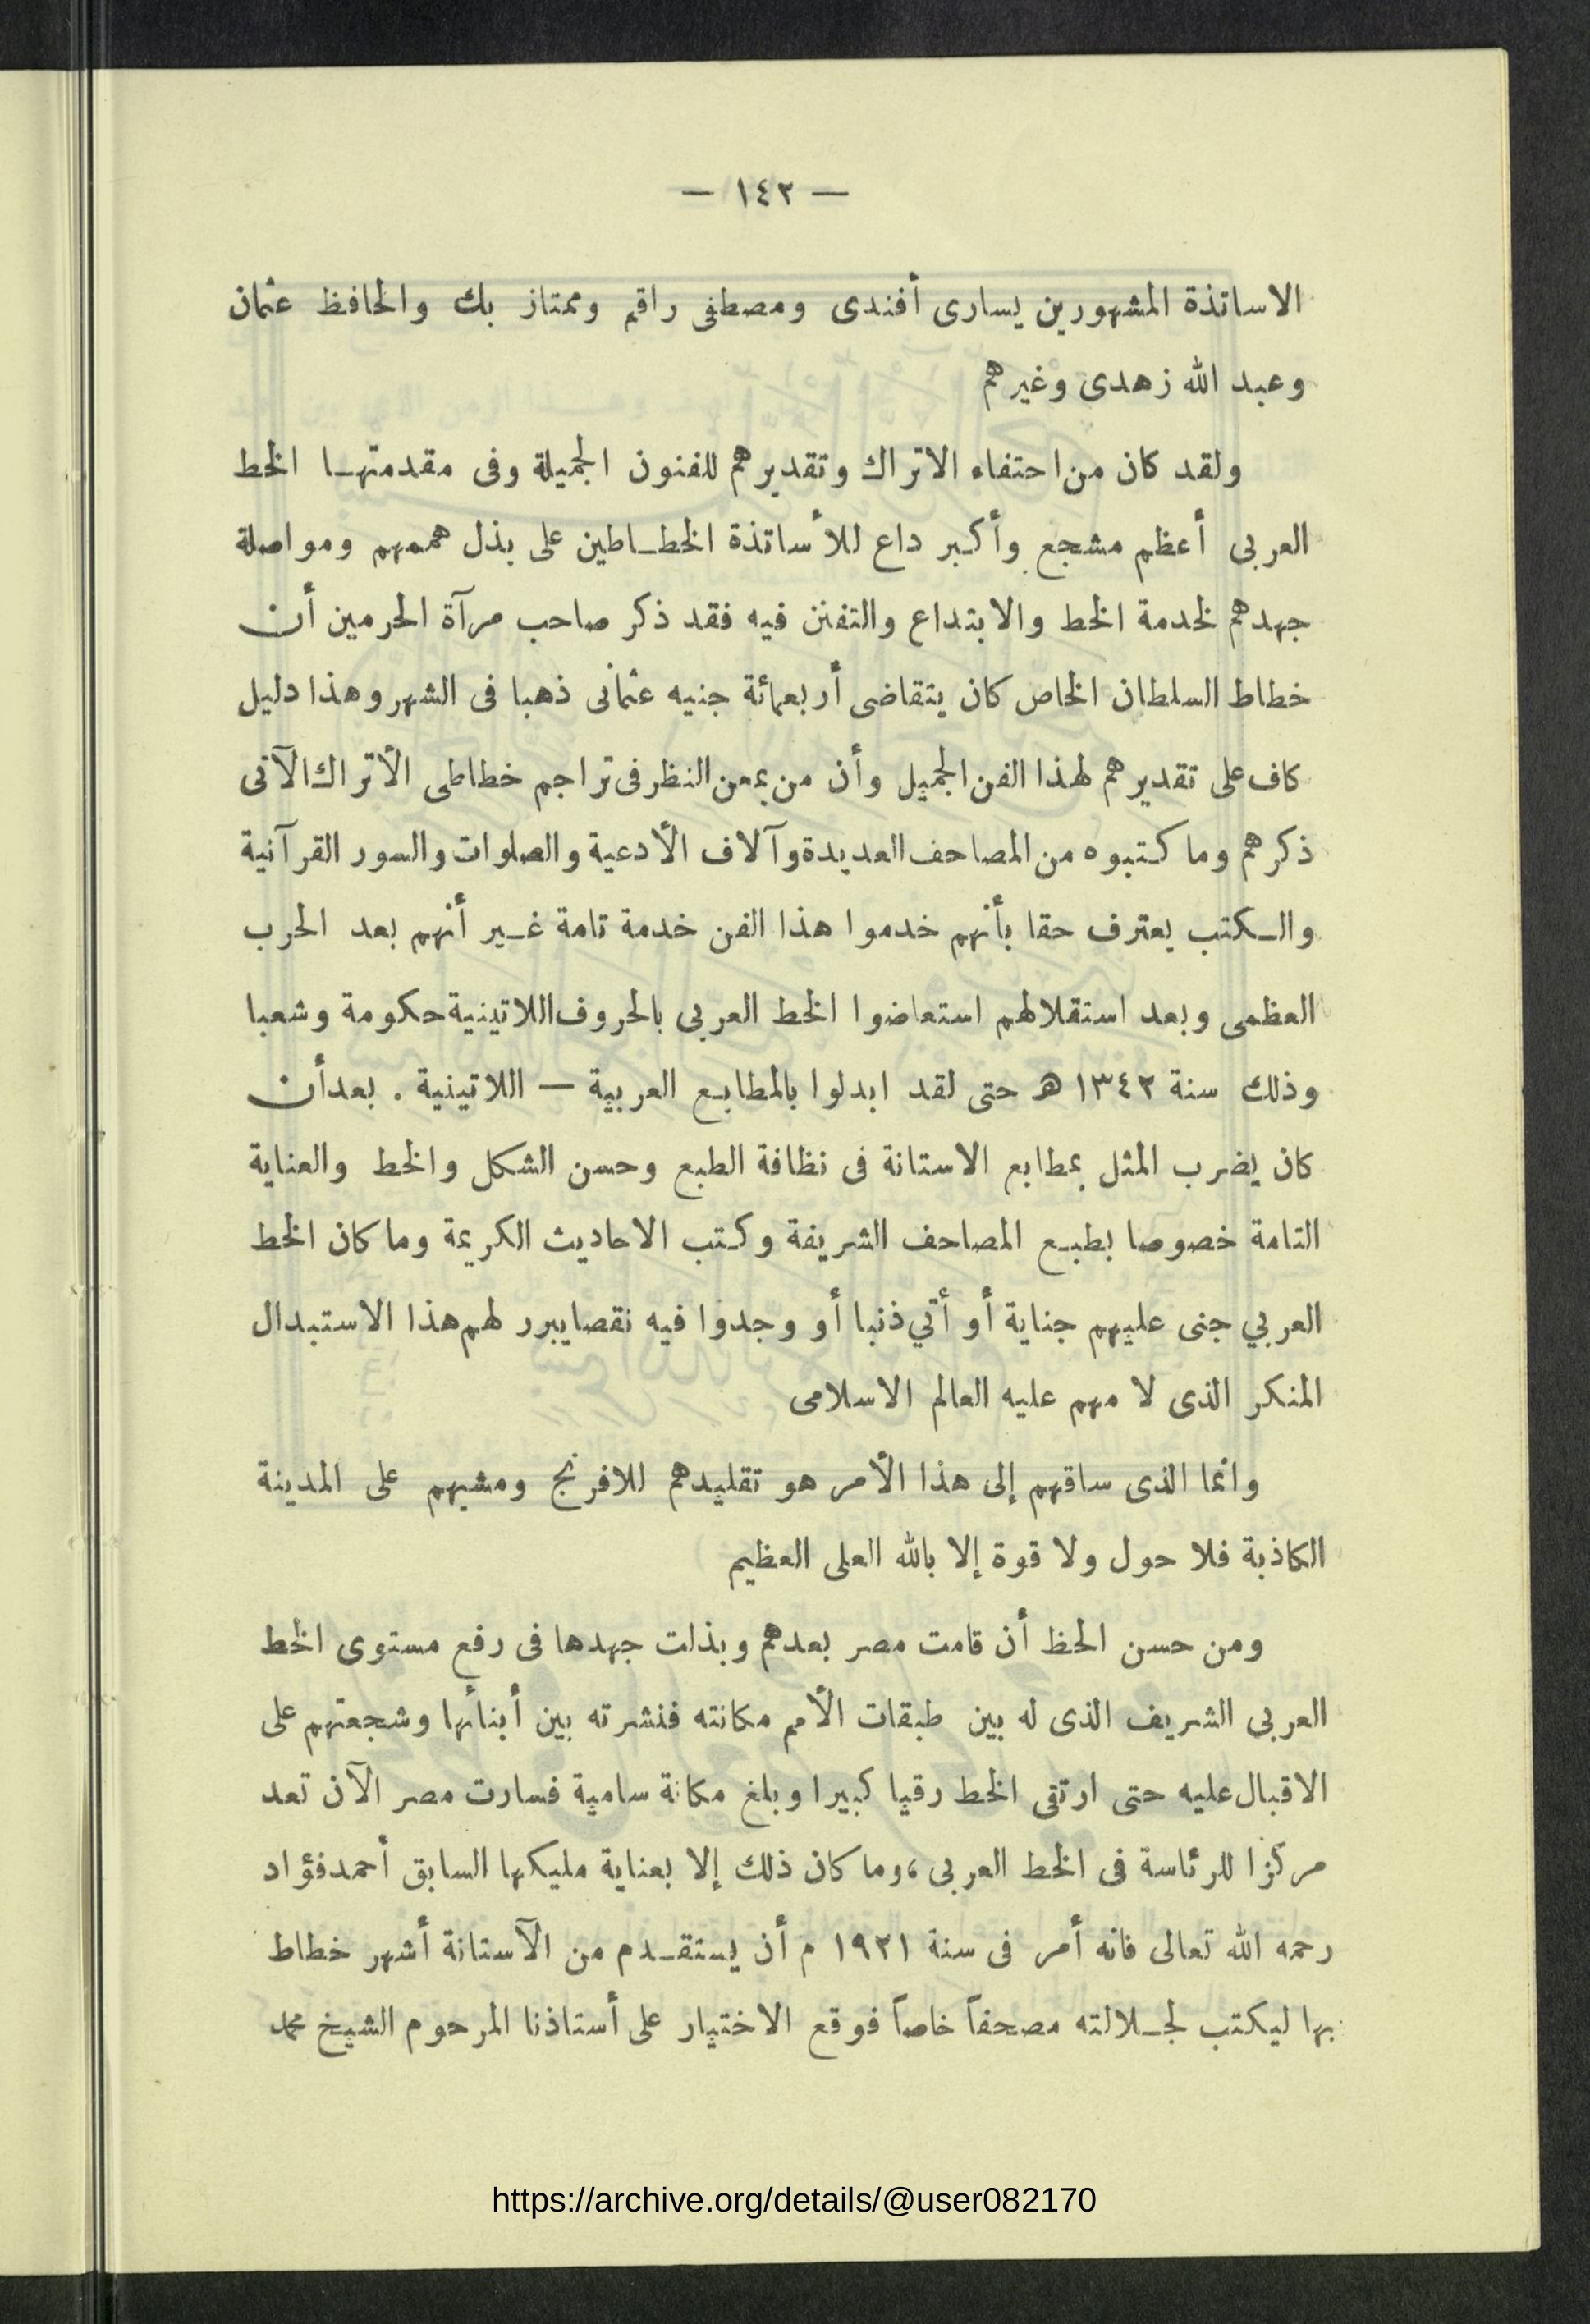 — ١٤٢ —
الاساتذة المشهورين يسارى أفندى ومصطفى راقم وممتاز بك والحافظ عثمان
وعبد الله زهدى وغيرهم
ولقد كان من احتفاء الاتراك وتقديرهم للفنون الجميلة وفى مقدمتها الخط
العربى أعظم مشجع وأكبر داع للأساتذة الخطاطين على بذل هممهم ومواصلة
جهدهم لخدمة الخط والابتداع والتفنن فيه فقد ذكر صاحب مرآة الحرمين أن
خطاط السلطان الخاص كان يتقاضى أربعمائة جنيه عثمانى ذهبا فى الشهر وهذا دليل
كاف على تقديرهم لهذا الفن الجميل وأن من يمعن النظر فى تراجم خطاطى الأتراك الآتى
ذكرهم وما كتبوه من المصاحف العديدة وآلاف الأدعية والصلوات والسور القرآنية
والكتب يعترف حقا بأنهم خدموا هذا الفن خدمة تامة غير أنهم بعد الحرب
العظمى وبعد استقلالهم استعاضوا الخط العربى بالحروف اللاتينية حكومة وشعبا
وذلك سنة ١٣٤٢ هـ حتى لقد ابدلوا بالمطابع العربية — اللاتينية . بعد أن
كان يضرب المثل بمطابع الاستانة فى نظافة الطبع وحسن الشكل والخط والعناية
التامة خصوصا بطبع المصاحف الشريفة وكتب الاحاديث الكريمة وما كان الخط
العربي جنى عليهم جناية أو أتي ذنبا أو وجدوا فيه نقصا يبرر لهم هذا الاستبدال
المنكر الذى لا مهم عليه العالم الاسلامى
وانما الذى ساقهم إلى هذا الأمر هو تقليدهم للافرنج ومشيهم على المدينة
الكاذبة فلا حول ولا قوة إلا بالله العلى العظيم
ومن حسن الحظ أن قامت مصر بعدهم وبذلت جهدها فى رفع مستوى الخط
العربى الشريف الذى له بين طبقات الأمم مكانته فنشرته بين أبنائها وشجعتهم على
الاقبال عليه حتى ارتقى الخط رقيا كبيرا وبلغ مكانة سامية فسارت مصر الآن تعد
مركزا للرئاسة فى الخط العربى ، وما كان ذلك إلا بعناية مليكها السابق أحمد فؤاد
رحمه الله تعالى فانه أمر فى سنة ١٩٢١ م أن يستقدم من الآستانة أشهر خطاط
بها ليكتب لجلالته مصحفاً خاصاً فوقع الاختيار على أستاذنا المرحوم الشيخ محمد
https://archive.org/details/@user082170